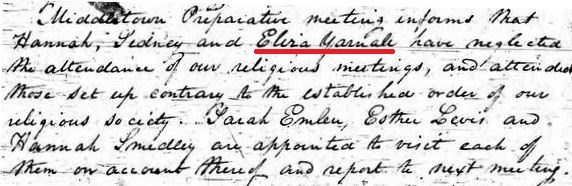 Middletown Preparative meeting informs that
Hannah, Sidney and Eliza Yarnall have neglected
the attendance of our religious meetings, and attended
those set up contrary to the established order of our
religious society. Sarah Emlen, Esther Levis and
Hannah Smedley are appointed to visit each of
them on account thereof and report to next meeting.